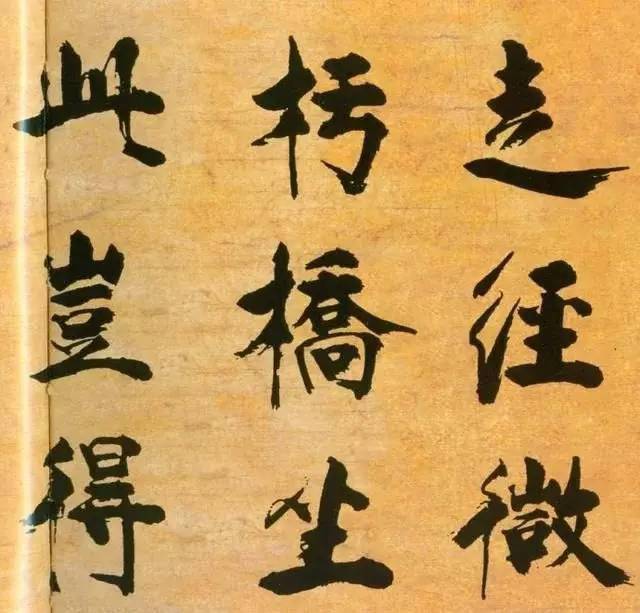 走徑微
朽橋坐
此豈得